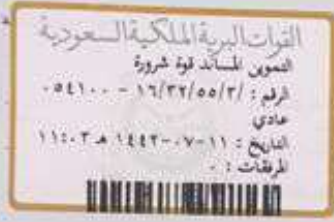 القوات البرية الملكية السعودية
التموين المساند قوة شرورة
الرقم : /١٦/٣٢/٥٥/٢ - ٠٥٤١٠٠
عادي
التاريخ : ١١-٠٧-١٤٤٢ هـ ١١:٠٣
المرفقات : ٠